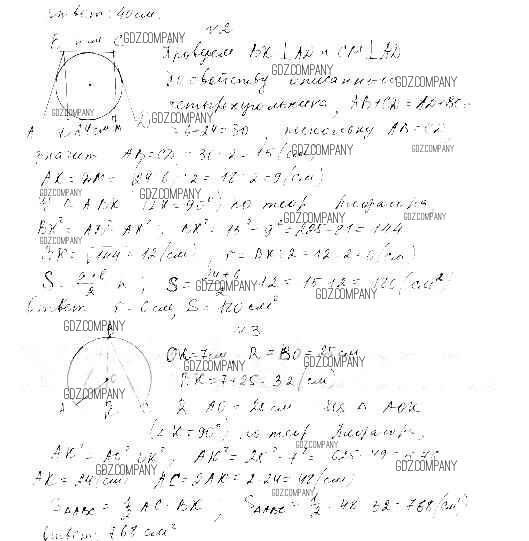 Ответ: 40 см.
№2
Проведем BK ⊥ AD и CM ⊥ AD
По свойству описанного
четырехугольника, AB+CD = AD+BC=
= 6+24=30, поскольку AB=CD,
значит AB=CD= 30:2=15 (см)
AK = DM = (24-6):2=18:2=9 (см)
△ ABK (∠K=90°) по теор Пифагора
BK² = AB² - AK², BK² = 15² - 9² = 225-81=144
BK = √144 = 12 (см), r = BK:2 = 12:2=6 (см)
S = (a+b)/2 h; S = (24+6)/2 · 12 = 15·12 = 180 (см²)
Ответ r=6 см, S=180 см²
№3
OK=7 см, R = BO = 25 см
BK = 7+25=32 (см)
R AO = 25 см Из △ AOK
(∠K=90°) по теор Пифагора,
AK² = AO² - OK², AK² = 25² - 7² = 625-49=576
AK = 24 (см) AC = 2AK = 2·24=48 (см)
S△ABC = 1/2 AC · BK; S△ABC = 1/2 · 48 · 32 = 768 (см²)
Ответ: 768 см²
GDZ.COMPANY